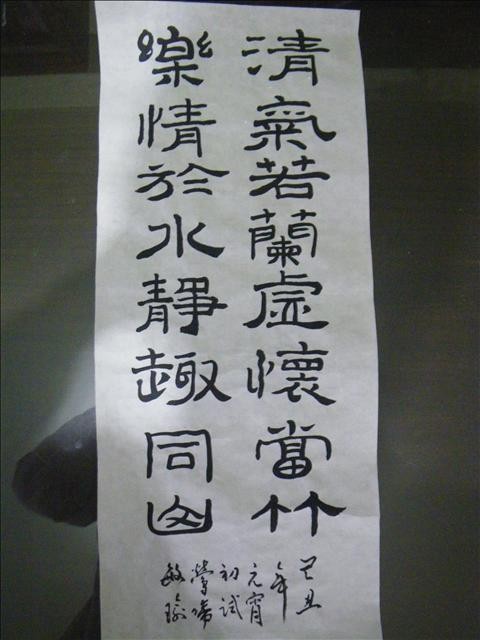 清氣若蘭虛懷當竹
樂情於水靜趣同山
己丑
年
元宵
初試